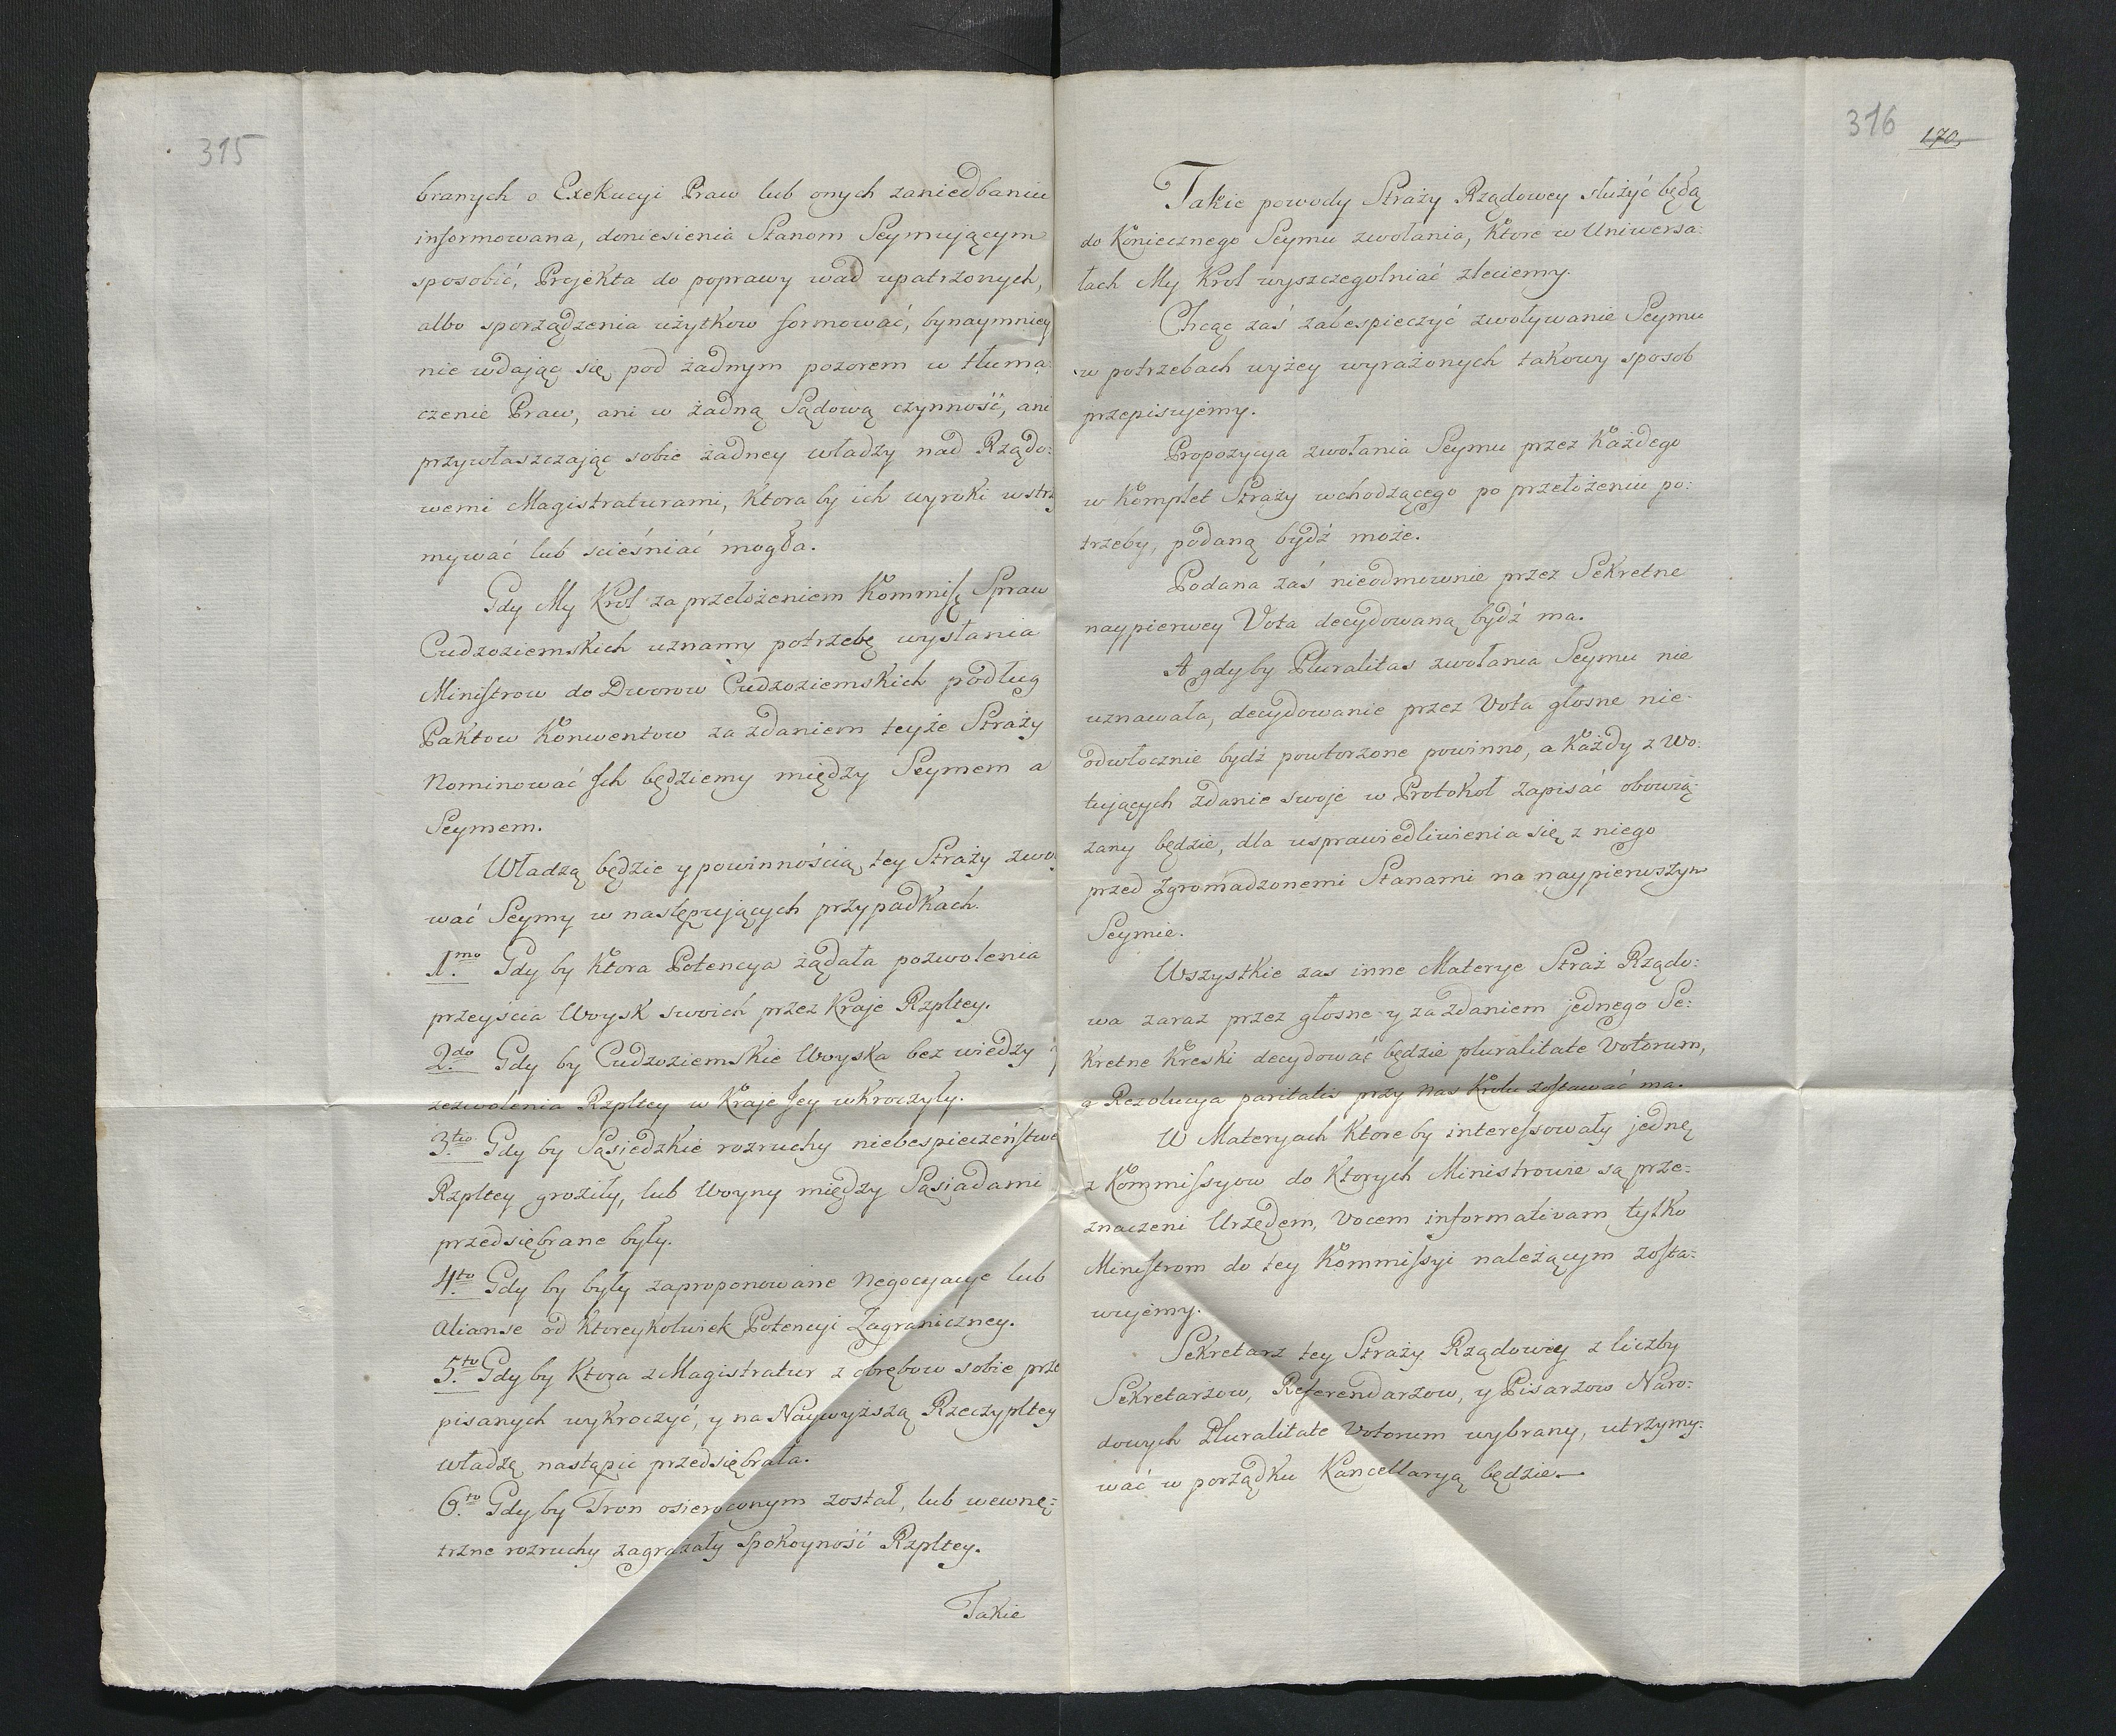 315
branych o Exekucyi Praw lub onych zaniedbaniu
informowana, doniesienia Stanom Seymującym
sposobić, Projekta do poprawy wad upatrzonych,
albo sporządzenia użytkow formować, bynaymniey
nie wdając się pod żadnym pozorem w tłuma:
czenie Praw, ani w żadną Sądową czynność, ani
przywłaszczając sobie żadney władzy nad Rządo:
wemi Magistraturami, Ktora by ich wyroki wstrz
mywać lub scieśniać mogła.
Gdy My Krol za przełożeniem Kommisę Spraw
Cudzoziemskich uznamy potrzebę wysłania
Ministrow do Dworow Cudzoziemskich podług
Paktow Konwentow za zdaniem teyże Straży
Nominować Ich będziemy między Seymem a
Seymem.
Władzą będzie y powinnością tey Straży zwo
wać Seymy w następujących przypadkach.
1mo. Gdy by Ktora Potencya żądała pozwolenia
przeyścia Woysk swoich przez Kraje Rzpltey.
2do. Gdy by Cudzoziemskie Woyska bez wiedzy y
zezwolenia Rzpltey w Kraje Jey wkroczyły.
3tio. Gdy by Sąsiedzkie rozruchy niebespieczeństwe
Rzpltey groziły, lub Woyny między Sąsiadami
przedsiębrane były.
4to. Gdy by były zaproponowane Negocyacye lub
Alianse od Ktoreykolwiek Potencyi Zagraniczney.
5to. Gdy by Ktora z Magistratur z obrębow sobie prze
pisanych wykroczyć, y na Naywyższą Rzeczypltey
władzę nastąpić przedsiębrała.
6.to Gdy by Tron osieroconym został, lub wewnę:
trzne rozruchy zagrażały Spokoyność Rzpltey.
Takie
316
170.
Takie powody Straży Rządowey służyć będą
do Koniecznego Seymu zwołania, Ktore w Uniwersa:
łach My Krol wyszczegolniać zleciemy.
Chcąc zaś zabespieczyć zwoływanie Seymu
w potrzebach wyżey wyrażonych takowy sposob
przepisujemy.
Propozycya zwołania Seymu przez Każdego
w Komplet Straży wchodzącego po przełożeniu po:
trzeby, podaną bydź może.
Podana zaś nieodmownie przez Sekretne
naypierwey Vota decydowaną bydź ma.
A gdy by Pluralitas zwołania Seymu nie
uznawała, decydowanie przez Vota głosne nie-
odwłocznie bydź powtorzone powinno, a Każdy z Wo:
tujących zdanie swoje w Protokoł zapisać obowią:
zany będzie, dla usprawiedliwienia się z niego
przed Zgromadzonemi Stanami na naypierwszym
Seymie.
Wszystkie zas inne Materye Straż Rządo:
wa zaraz przez głosne y za zdaniem jednego Se:
kretne Kreski decydować będzie pluralitate Votorum,
a Rezolucya paritatis przy Nas Krolu zostawać ma.
W Materyach Ktore by interessowały jednę
z Kommissyow do Ktorych Ministrowie są prze:
znaczeni Urzędem, Vocem informativam tylko
Ministrom do tey Kommissyi należącym zosta:
wujemy.
Sekretarz tey Straży Rządowey z liczby
Sekretarzow, Referendarzow, y Pisarzow Naro:
dowych Pluralitate Votorum wybrany, utrzymy:
wać w porządku Kancellaryą będzie.